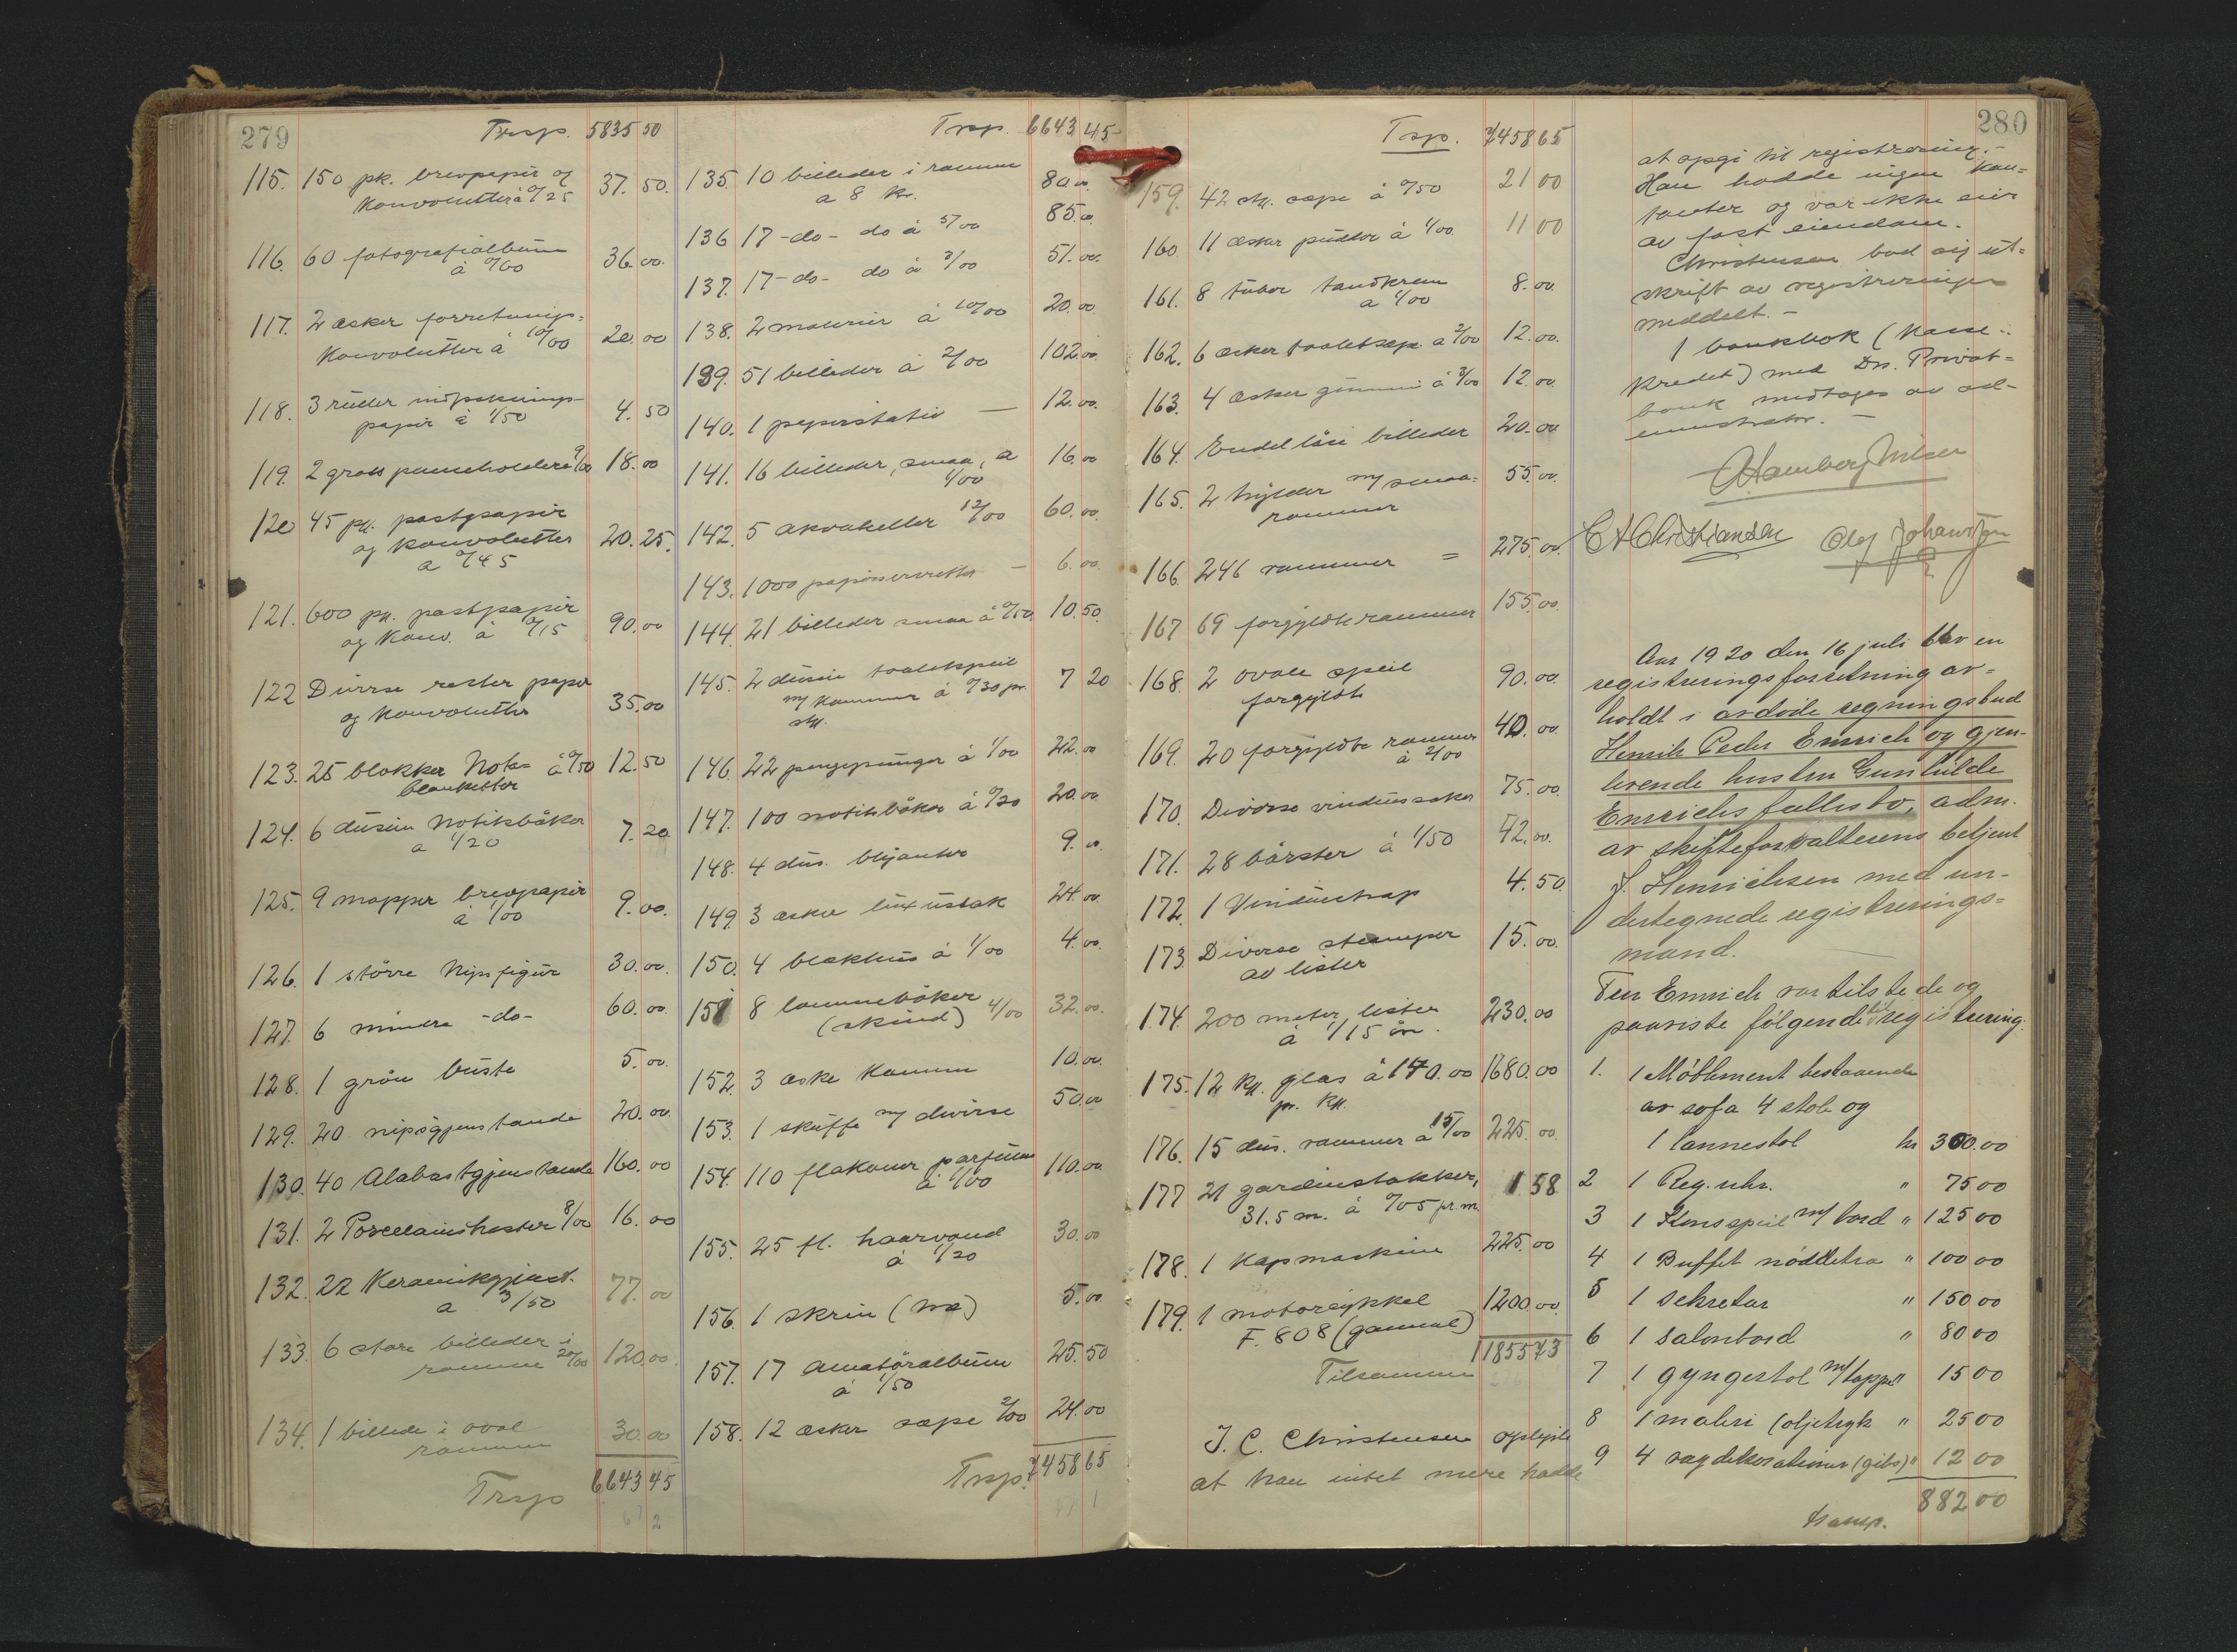 279
Trsp. 5835 50
115. 150 pk. brevpapir og
konvolutter à 0/25 37.50.
116. 60 fotografialbum
à 0/60 36.00.
117. 2 æsker forretnings-
konvolutter à 10/00 20.00
118. 3 ruller indpaknings-
papir à 1/50 4.50
119. 2 gross penneholdere 9/00 18.00
120 45 pk. postpapir
og konvolutter
a 0/45 20.25.
121. 600 pk. postpapir
og konv. à 0/15 90.00
122 Diverse rester papir
og konvolutter 35.00
123. 25 blokker Nota- à 0/50 12.50
blanketter
124. 6 dusin Notisbøker
a 1/20 7.20
125. 9 mapper brevpapir
à 1/00 9.00.
126. 1 større Nips figur 30.00.
127. 6 mindre -do- 60.00.
128. 1 grøn büste 5.00.
129. 20 nipsgjenstande 20.00.
130. 40 Alabastgjenstande 160.00
131. 2 Porcelainshester 8/00 16.00
132. 22 Keramikgjenst.
a 3/50 77.00
133. 6 store billeder i
ramme 20/00 120.00.
134. 1 billede i oval
ramme 30.00
Trsp 6643 45
Trsp. 6643 45
135. 10 billeder i ramme
a 8 kr. 80.00.
136 17 -do- do à 5/00 85.00
137. 17 -do- do à 3/00 51.00.
138. 2 malerier à 10/00 20.00
139. 51 billeder à 2/00 102.00.
140. 1 papirstativ — 12.00.
141. 16 billeder, smaa, a
1/00 16.00
142. 5 akvareller 12/00 60.00.
143. 1000 papirservietter — 6.00.
144. 21 billeder smaa à 0/50 10.50.
145. 2 dusin toiletspeil
m/ kammer à 0/30 pr.
stk. 7 20
146. 22 pengepunger à 1/00 22.00
147. 100 notisbøker à 0/20 20.00
148. 4 dus. blyanter 9.00.
149. 3 æsker luxuslak 24.00.
150. 4 blækhus à 1/00 4.00.
151 8 lommebøker
(skind) 4/00 32.00.
152. 3 æske kamme 10.00.
153. 1 skuffe m/ diverse 50.00
154. 110 flakoner parfume
à 1/00 110.00
155. 25 fl. haarvand
à 1/20 30.00
156. 1 skrin 5.00
157. 17 amatøralbum
à 1/50 25.50
158. 12 æsker sæpe 2/00 24.00
Trsp. 7458 65
280
Trsp. 7458 65
159. 42 stk. sæpe à 0/50 21 00
160. 11 æsker pudder à 1/00 11 00
161. 8 tuber tandkrem
a 1/00 8.00.
162. 6 æsker toiletsæpe a 2/00 12.00.
163. 4 æsker gummi à 3/00 12.00.
164. Endel løse billeder 20.00.
165. 2 hylder m/ smaa-
rammer 55.00.
166. 246 rammer = 275.00.
167 69 forgyldte rammer 155.00.
168. 2 ovale speil
forgyldte 90.00.
169. 20 forgyldte rammer
à 2/00 40.00.
170. Diverse vindussaker 75.00.
171. 28 børster à 1/50 42.00.
172. 1 Vindustrap 4.50.
173. Diverse stumper
av lister 15.00.
174. 200 meter lister
à 1/15 øre. 230.00
175. 12 kg. glas à 140.00 1680.00
pr. kg.
176. 15 dus. rammer à 15/00 225.00.
177 21 gardinstokker,
31.5 m. à 0/05 pr. m. 1 58
178. 1 kapmaskine 225.00
179. 1 motorcykkel
F. 808 (gammel) 1200.00.
Tilsammen 11855 73
J. C. Christensen oplyste
at han intet mere hadde
at opgi til registrering.-
Han hadde ingen kon-
tanter og var ikke eier
av fast eiendom.
Christensen bad sig ut-
skrift av registreringen
meddelt. -
1 bankbok (kasse-
kredit) med Dn. Privat-
bank medtages av ad-
ministrator. -
C A Christiansen Olaf Johansen
Aar 1920 den 16 juli blev en
registreringsforretning av-
holdt i avdøde regningsbud
Henrik Peder Emrich og gjen-
levende hustru Gunhilde
Emrichs fallesbo, adm.
av skifteforvalterens betjent
J. Henrichsen med un-
dertegnede registrerings-
mand.
Fru Emrich var tilstede og
paaviste følgende til registrering:
1. 1 Møblement bestaaende
av sofa 4 stole og
1 lænestol kr 300.00
2 1 Reg. uhr. " 75 00
3 1 Konsolspeil m/ bord " 125 00
4 1 Buffet nøddetræ " 100 00
5 1 sekretær " 150 00
6 1 salonbord " 80 00
7 1 gyngestol m/ tæppe " 15 00
8 1 maleri (oljetryk " 25 00
9 4 vægdekorationer (gibs) " 12 00
transp. 882 00